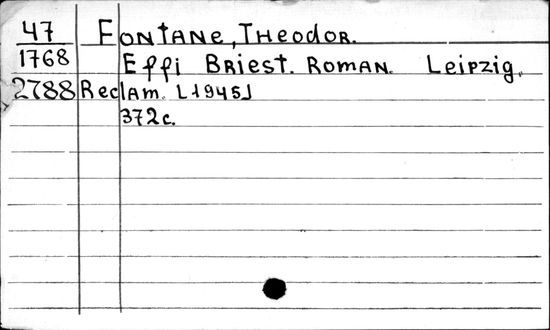 47 FONTANE, THEODOR.
1768 Effi BRIEST. ROMAN. Leipzig,
2788 Reclam. [1945]
372c.